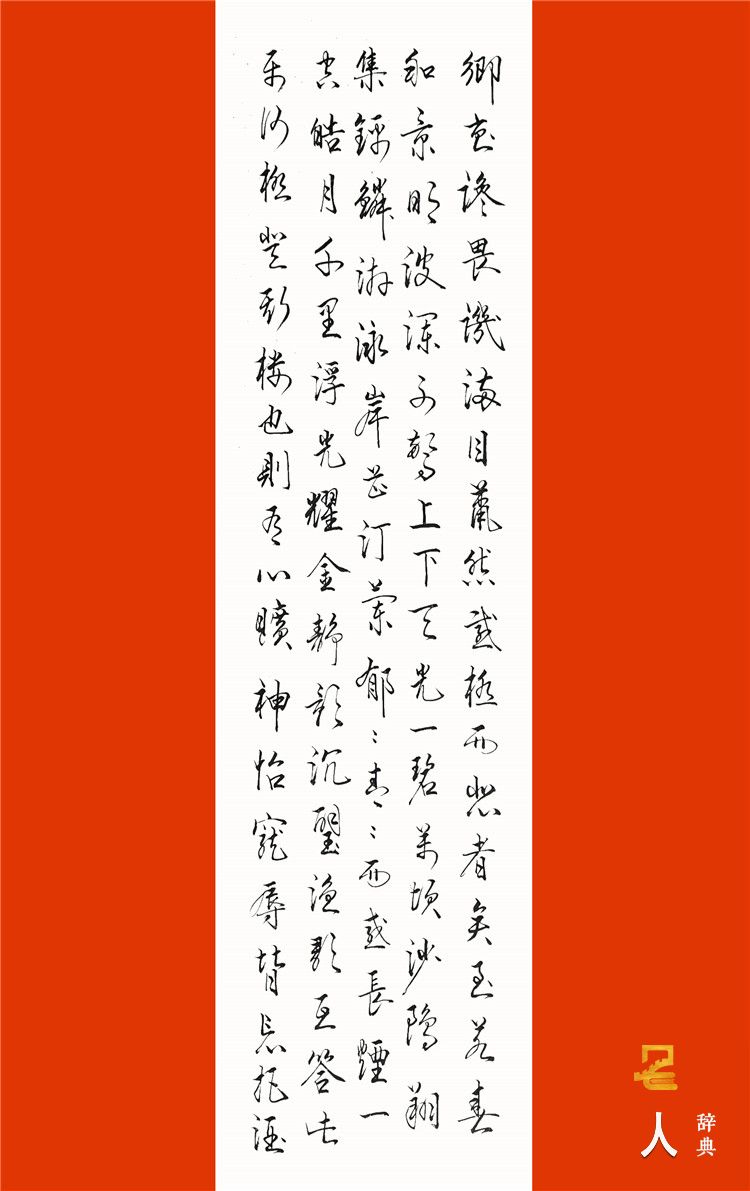 鄉憂讒畏譏滿目蕭然感極而悲者矣至若春
和景明波瀾不驚上下天光一碧萬頃沙鷗翔
集錦鱗游泳岸芷汀蘭郁〻青〻而或長煙一
空皓月千里浮光耀金靜影沉璧漁歌互答此
樂何極登斯樓也則有心曠神怡寵辱皆忘把酒
人
辞典